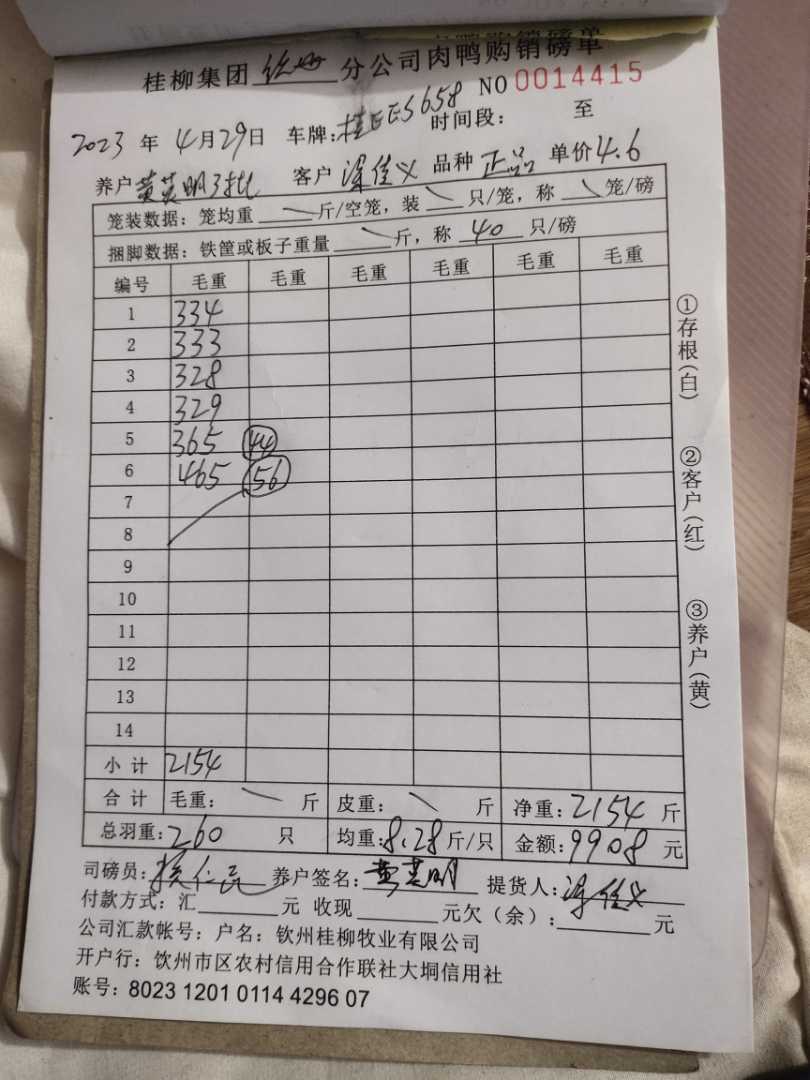 桂柳集团 钦州 分公司肉鸭购销磅单
NO 0014415
2023 年 4月29日 车牌:桂EES658 时间段: 至
养户 黄英明3批 客户 梁佳义 品种 正品 单价4.6
笼装数据：笼均重 \ 斤/空笼，装 \ 只/笼，称 \ 笼/磅
捆脚数据：铁筐或板子重量 \ 斤，称 40 只/磅
编号 毛重 毛重 毛重 毛重 毛重 毛重
1 334
2 333
3 328
4 329
5 365 44
6 465 56
7
8
9
10
11
12
13
14
小计 2154
合计 毛重: \ 斤 皮重: \ 斤 净重:2154 斤
总羽重:260 只 均重:8.28斤/只 金额:9908 元
司磅员: 养户签名:黄英明 提货人:梁佳义
付款方式：汇 元 收现 元欠（余）: 元
公司汇款帐号：户名：钦州桂柳牧业有限公司
开户行：钦州市区农村信用合作联社大垌信用社
账号：8023 1201 0114 4296 07
①存根(白)
②客户(红)
③养户(黄)